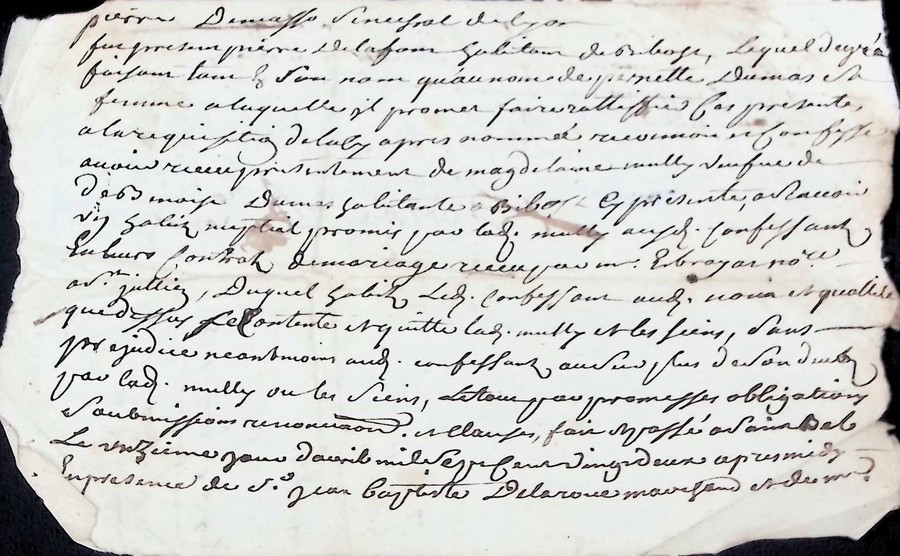 pierre Dumasso Senechal de Lyon
fut present pierre Delafont habitant de Bibost, Lequel de gré
faisant tant en Son nom quau nom de pernette Dumas Sa
femme a laquelle il promet faire rattiffier Ces presentes
a la requisition de lady apres nommée reconnoit et Confesse
avoir receu presentement de magdelaine mully veufve de
Dumas habitante a Bibost Cy presente, a Scavoir
un habit nuptial promis par lad. mully aud. Confessant
En leurs Contrat de mariage receu par me. no.re
a St. jullien, Duquel habit Led. Confessant aud. nom et qualité
que dessus Se Contente et quitte lad. mully et les siens, Sans
prejudice neantmoins aud. confessant du Sur plus de Son deub
par lad. mully ou les Siens, Le tout par promesses obligations
Soubmissions renonciaons. et Clauses, fait et passé a Sain Bel
Le unzieme jour davril mil Sept Cent vingt deux apres midy
En presence de Sr. jean Baptiste Delaroue marchand et de me.